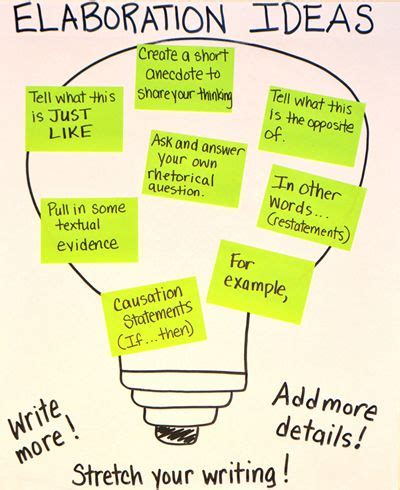 ELABORATION IDEAS
Create a short
anecdote to
share your thinking
Tell what this
is JUST
LIKE
Tell what this
is the opposite
of.
Ask and answer
your own
rhetorical
question.
In other
words...
(restatements)
Pull in some
textual
evidence
For
example,
Causation
Statements
(If...then)
Write
more!
Add more
details!
Stretch your writing!